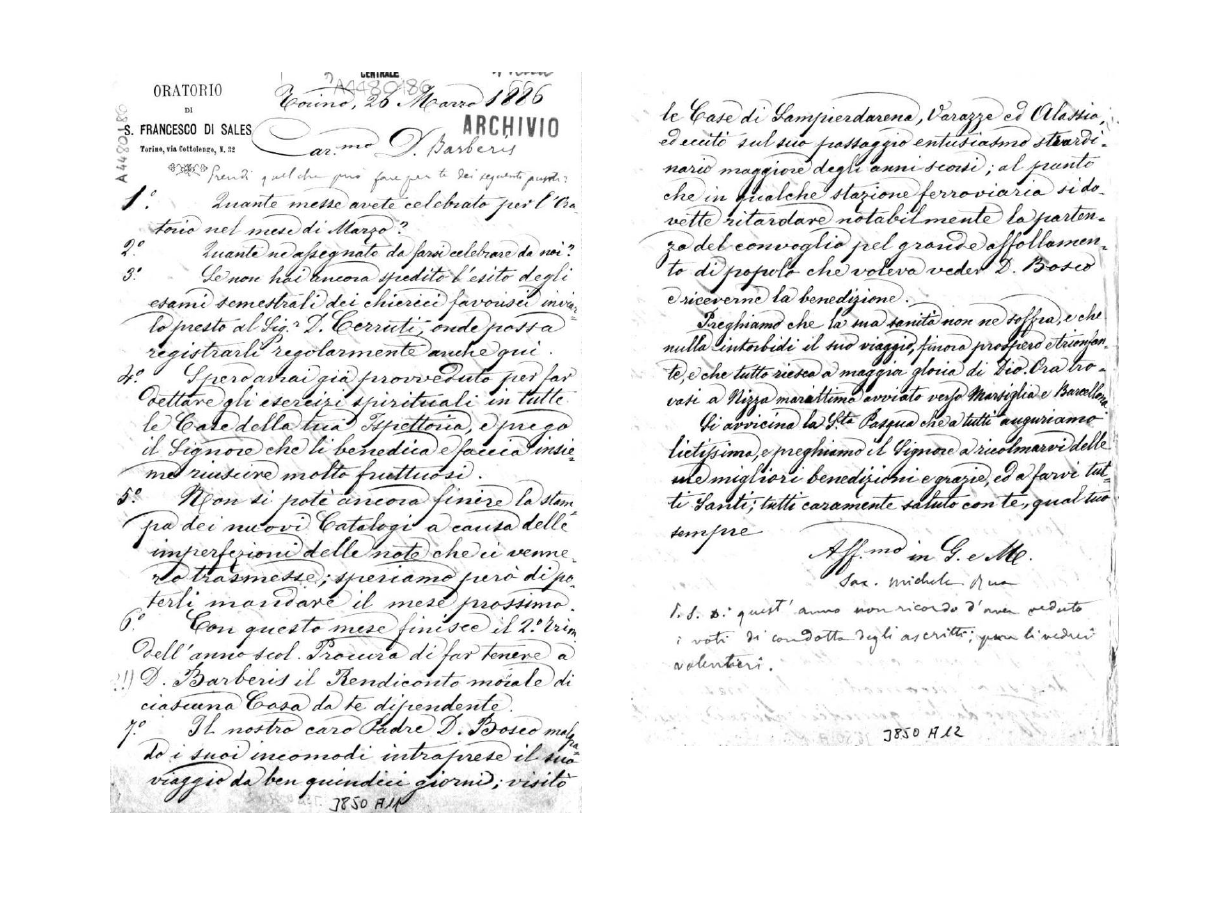 CENTRALE
A4480186
ORATORIO
DI
S. FRANCESCO DI SALES
Torino, via Cottolengo, N. 32
A4480186
Torino, 26 Marzo 1886
ARCHIVIO
Car.mo D. Barberis
Prendi quel che può fare per te dei seguenti punti:
1º. Quante messe avete celebrato per l'Ora-
torio nel mese di Marzo?
2º Quante ne assegnate da farsi celebrare da noi?
3º. Se non hai ancora spedito l'esito degli
esami semestrali dei chierici favorisci invia-
lo presto al Sig.r D. Cerruti, onde possa
registrarli regolarmente anche qui.
4º. Spero avrai già provveduto per far
dettare gli esercizi spirituali in tutte
le Case della tua Ispettoria, e prego
il Signore che li benedica e faccia insie-
me riuscire molto fruttuosi.
5º. Non si potè ancora finire la stam-
pa dei nuovi Catalogi a causa delle
imperfezioni delle note che ci venne-
ro trasmesse; speriamo però di po-
terli mandare il mese prossimo.
6º. Con questo mese finisce il 2º. trim.
dell'anno scol. Procura di far tenere a
!!) D. Barberis il Rendiconto morale di
ciascuna Casa da te dipendente.
7º. Il nostro caro Padre D. Bosco malgra-
do i suoi incomodi intraprese il suo
viaggio da ben quindici giorni; visitò
3850 A11
le Case di Sampierdarena, Varazze ed Alassio,
ed eccitò sul suo passaggio entusiasmo straordi-
nario maggiore degli anni scorsi; al punto
che in qualche stazione ferroviaria si do-
vette ritardare notabilmente la parten-
za del convoglio pel grande affollamen-
to di popolo che voleva veder D. Bosco
e riceverne la benedizione.
Preghiamo che la sua sanità non ne soffra, e che
nulla intorbidi il suo viaggio, finora prospero e trionfan-
te, e che tutto riesca a maggia gloria di Dio. Ora tro-
vasi a Nizza marittima avviato verso Marsiglia e Barcellona.
Si avvicina la S.ta Pasqua che a tutti auguriamo
lietissima, e preghiamo il Signore a ricolmarvi delle
sue migliori benedizioni e grazie, ed a farvi tut-
ti Santi; tutti caramente saluto con te, qual tuo
sempre
Aff.mo in G. e M.
Sac. Michele Rua
P.S. D: quest'anno non ricordo d'aver veduto
i voti di condotta degli ascritti; pure li vedrei
volentieri.
3850 A12